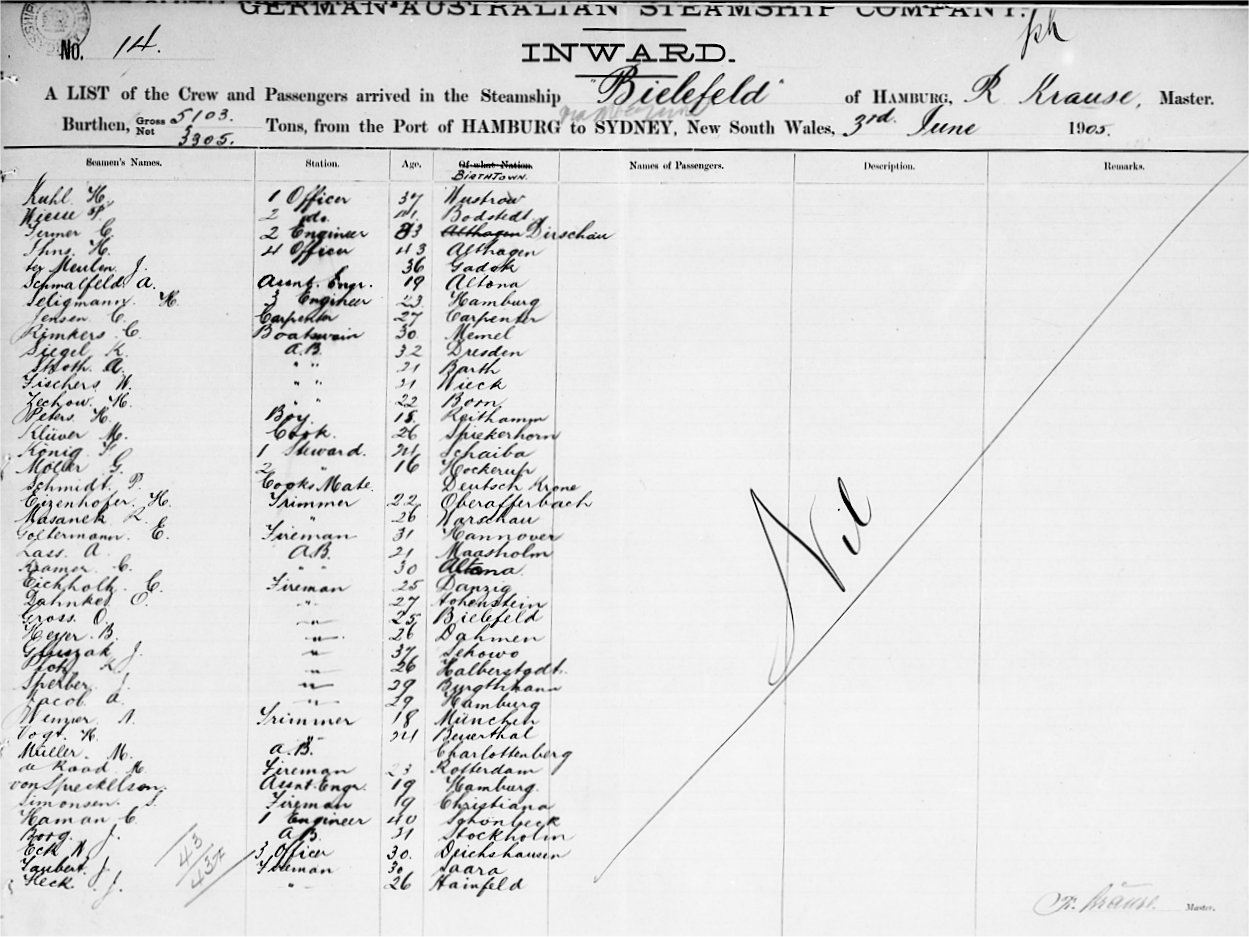 GERMAN-AUSTRALIAN STEAMSHIP COMPANY.
No. 14.
INWARD.
A LIST of the Crew and Passengers arrived in the Steamship "Bielefeld" of HAMBURG, R Krause, Master.
Burthen, Gross 5103. Net 3305. Tons, from the Port of HAMBURG to SYDNEY, New South Wales, 3rd June 1905.
Seamen's Names. Station. Age. Of what Nation. BIRTHTOWN. Names of Passengers. Description. Remarks.
Kuhl. H. 1 Officer 37 Wustrow
Wiese 2 do. Bodstedt
Fermer C. 2 Engineer Althagen Dirschau
Ihns. H. 4 Officer 43 Althagen
ter Meulen J. 36
Schmalfeld. A. Assnt. Engr. 19 Altona
Seligmann. H. 3 Engineer 23 Hamburg
Jensen C. Carpenter 27 Carpenter
Rimkers C. Boatswain 30 Memel
Siegel K. A.B. 32 Dresden
A. " " 21 Barth
Fischers W. " " 21 Wieck
Zechow. H. " " 22 Born
Peters. H. Boy. 18. Reithamm
Klüver M. Cook. 26 Spiekerhorn
König. F. 1 Steward. 24 Schaiba
Möller G. 2 " 16 Hockerup
Schmidt. P. Cooks Mate. Deutsch Krone
Eizenhofer. H. Trimmer 22 Oberafferbach
Masanek L. " 26 Warschau
Goltermann. E. Fireman 31 Hannover
Lass. A. A.B. 21 Maasholm
Kramer. C. " " 30 Altona.
Eichholtz C. Fireman 25 Danzig
Dahnke O. " 27 Hohenstein
Gross. O. " 25 Bielefeld
Heyer. B. " 26 Dahmen
J. " 37 Sekowo
" 26 Halberstadt.
Sperber. J. " 39 Burgthann
Jacob. A. " 29 Hamburg
Trimmer 18 München
Vogt. H. " 24 Beuerthal
Müller. M. A.B. Charlottenberg
de Raad. M. Fireman 23 Rotterdam
von Spreckelsen. Assnt. Engr. 19 Hamburg.
Simonsen. S. Fireman 19 Christiana
Haman C. 1 Engineer 40 Schönbeck
Borg. J. A.B. 31 Stockholm
Eck W. 3 Officer 30. Deichshausen
Taubert. J. Fireman 30 Saara
Heck. J. " 26 Hainfeld
Nil
43
R. Krause. Master.